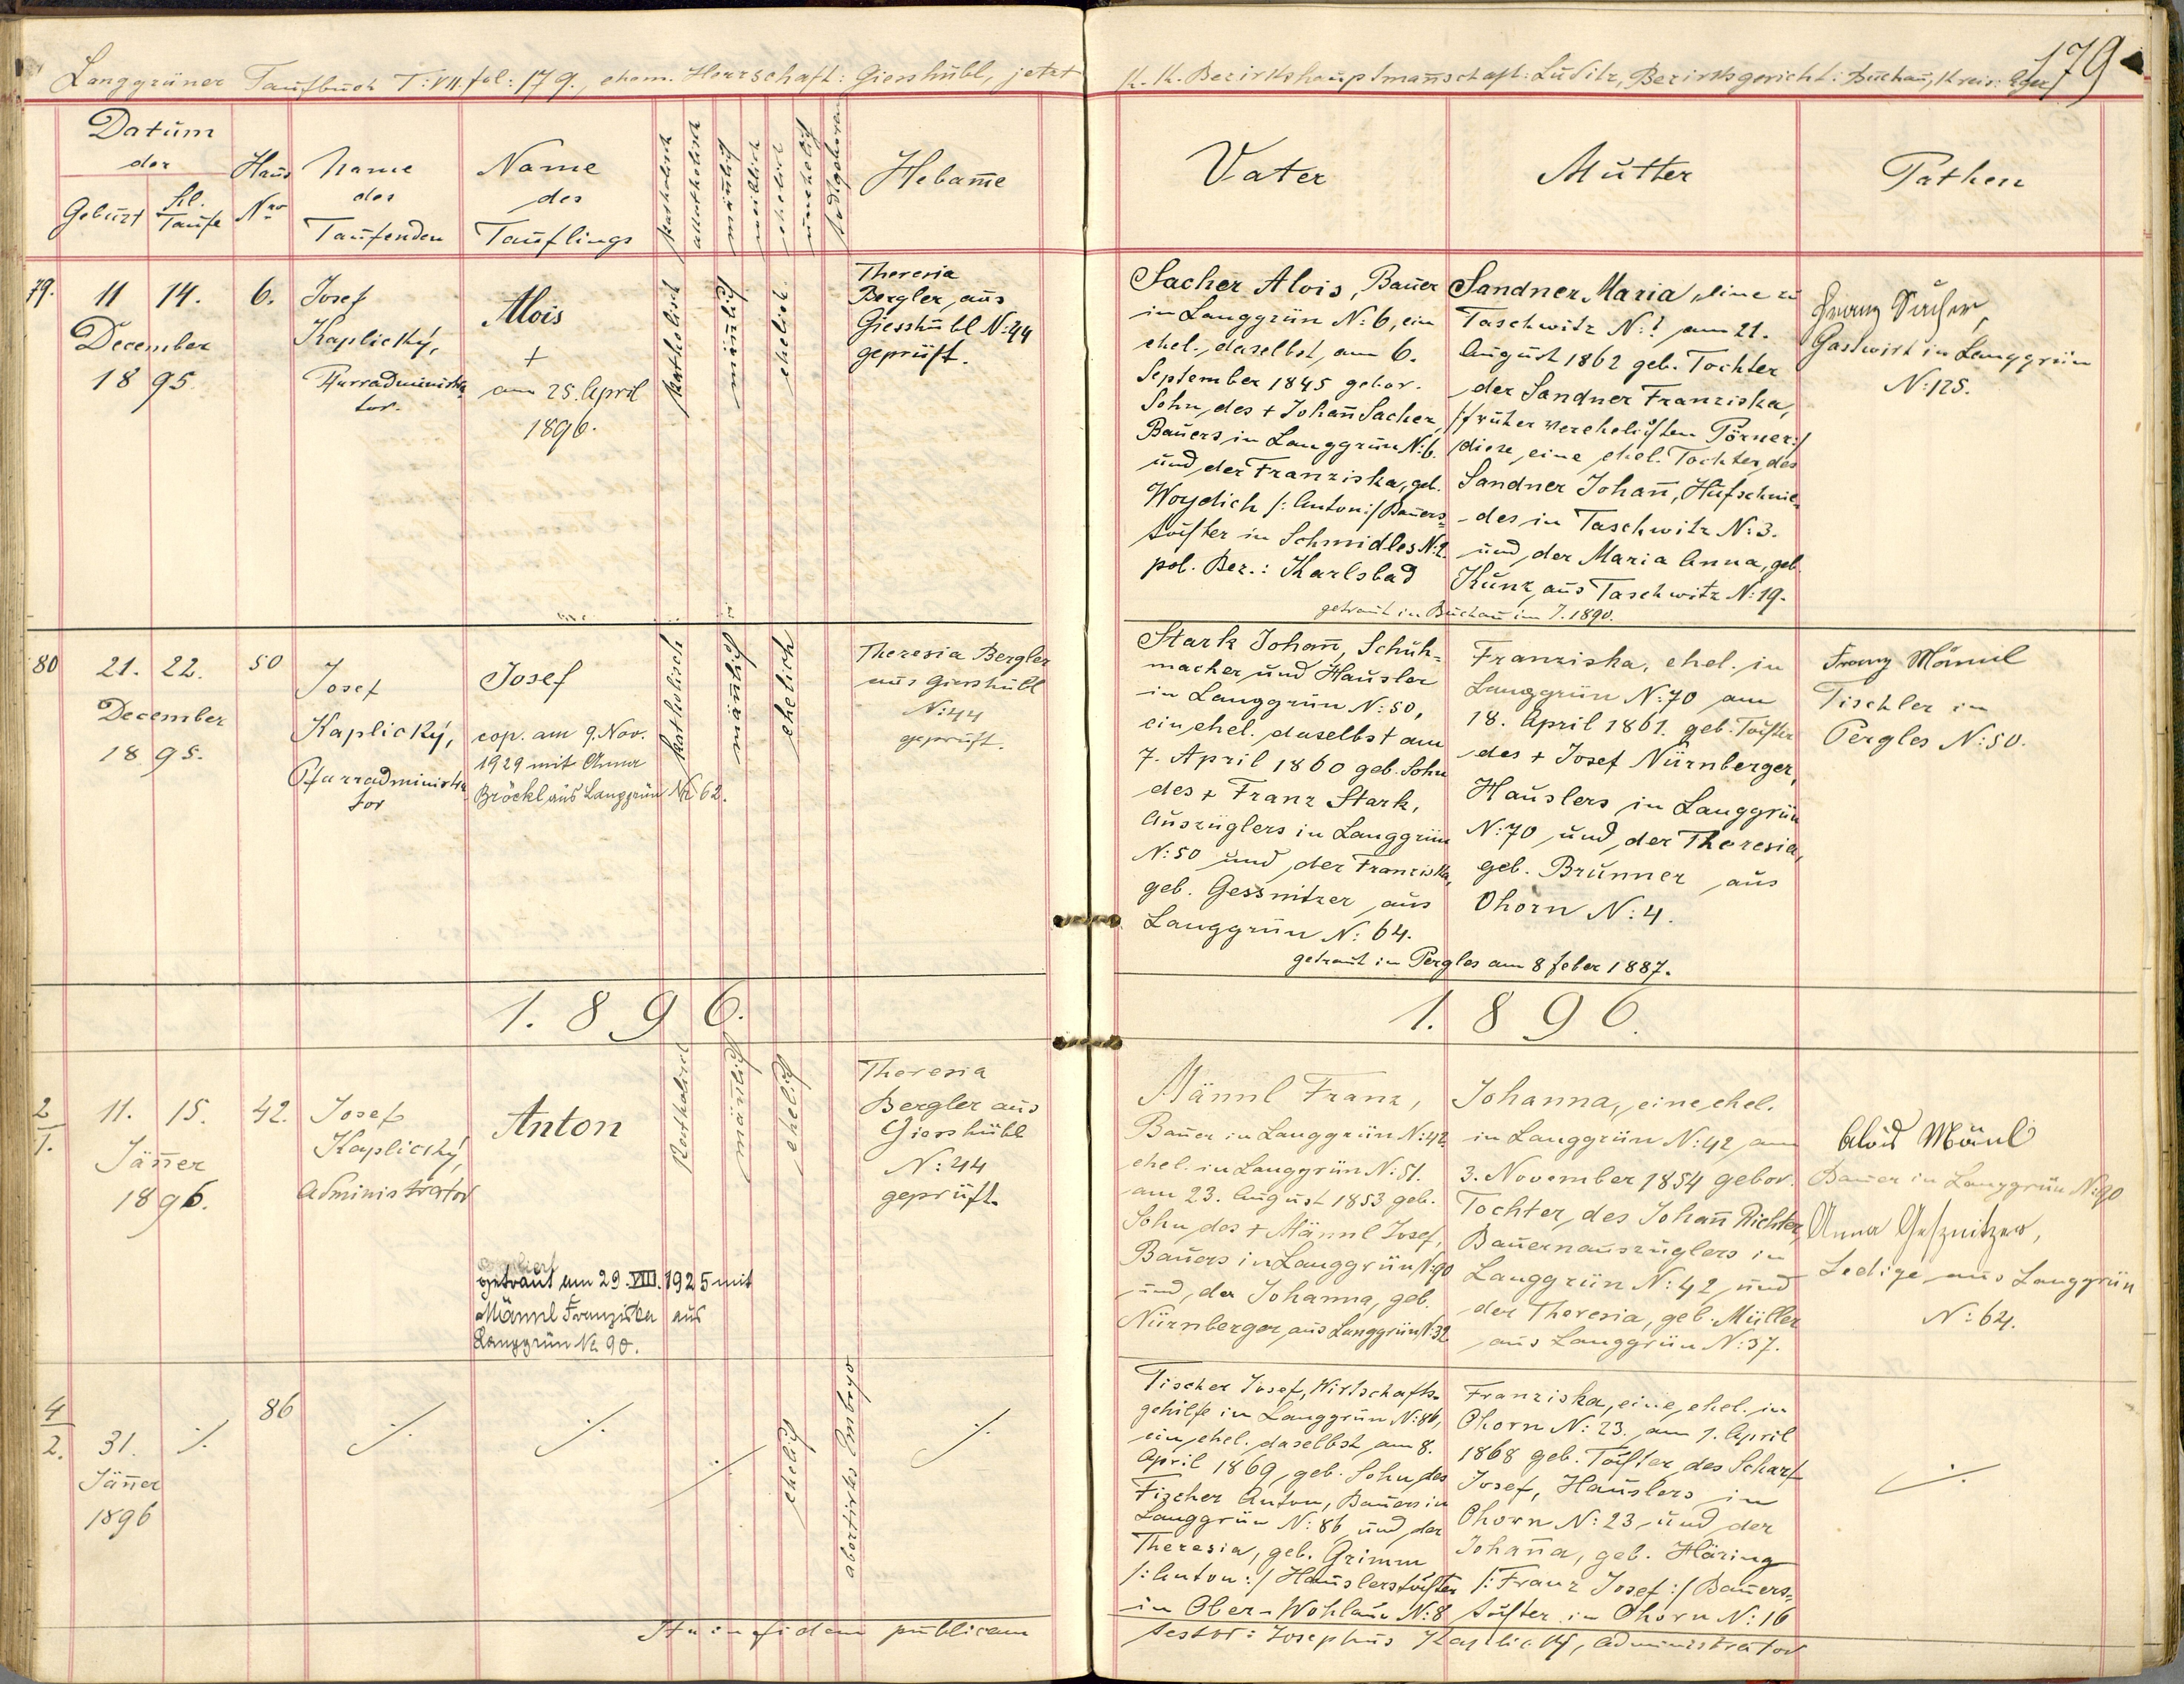 Langgrüner Taufbuch T: VII. fol: 179., ehem. Herrschaft: Giershübl, jetzt K. K. Bezirkshauptmannschaft: Luditz, Bezirksgericht: Buchau, Kreis: Eger/
179
Datum
der
Geburt
hl.
Taufe
Haus
Nro
Name
des
Taufenden
Name
des
Tauflings
katholisch
akatholisch
mänlich
weiblich
ehelich
unehelich
todtgeboren
Hebam̄e
Vater
Mutter
Pathen
79.
11 14.
December
1895
6.
Josef
Kaplický,
Pfarradministra
tor.
Alois
+
am 25. April
1896.
katholisch
mänlich
ehelich
Theresia
Bergler, aus
Giesshübl N: 44
geprüft.
Sacher Alois, Bauer
in Langgrün N: 6, ein
ehel., daselbst, am 6.
September 1845 gebor.
Sohn, des + Johan̄ Sacher,
Bauers in Langgrün N: 6.
und der Franziska, geb.
Woydich /: Anton :/ Bauers=
tochter in Schmidles N: 2.
pol. Bez.: Karlsbad
Sandner Maria, eine zu
Taschwitz N: 1 am 21.
August 1862 geb. Tochter
der Sandner Franziska,
/: früher verehelichten Pörner :/
diese, eine ehel. Tochter des
Sandner Johan̄, Hufschmie
-des in Taschwitz N: 3.
und der Maria Anna, geb.
Kunz, aus Taschwitz N: 19.
getraut in Buchau im J. 1890.
Franz Sacher,
Gastwirt in Langgrün
N: 125.
80
21. 22.
December
1895.
50
Josef
Kaplický,
Pfarradministra
tor
Josef
cop. am 9. Nov.
1929 mit Anna
Bröckl aus Langgrün Nr 62.
katholisch
mänlich
ehelich
Theresia Bergler
aus Gieshübl
N: 44
geprüft.
Stark Johan̄, Schuh=
macher und Häusler
in Langgrün N: 50,
ein ehel. daselbst am
7. April 1860 geb. Sohn
des + Franz Stark,
Auszüglers in Langgrün
N: 50 und der Franziska,
geb. Gessnitzer, aus
Langgrün N: 64.
Franziska, ehel. in
Langgrün N: 70 am
18. April 1861. geb. Tochter
des + Josef Nürnberger,
Häuslers in Langgrün
N: 70 und der Theresia,
geb. Brunner, aus
Ohorn N: 4.
getraut in Pergles am 8 Feber 1887.
Franz Männl
Tischler in
Pergles N: 50.
1.896.
1.896.
2
1.
11. 15.
Jän̄er
1896.
42.
Josef
Kaplický,
Administrator
Anton
getraut am 29. VIII. 1925 mit
Männl Franziska aus
Langgrün Nr. 90.
katholisch
mänlich
ehelich
Theresia
Bergler aus
Giershübl
N: 44
geprüft.
Männl Franz,
Bauer in Langgrün N: 42
ehel. in Langgrün N: 51.
am 23. August 1853 geb.
Sohn, des + Männl Josef,
Bauers in Langgrün N: 90
und, der Johanna, geb.
Nürnberger, aus Langgrün N: 32
Johanna, eine, ehel.
in Langgrün N: 42 am
3. November 1854 gebor.
Tochter, des Johan̄ Richter,
Bauernauszüglers in
Langgrün N: 42, und
der Theresia, geb. Müller
aus Langgrün N: 37.
Alois Mänl
Bauer in Langgrün N: 90
Anna Gessnitzer,
Ledige aus Langgrün
N: 64.
4
2.
31. ./.
Jän̄er
1896
86
./.
./.
./.
ehelich
abortirtes Embryo
./.
Fischer Josef, Wirtschafts-
gehilfe in Langgrün N: 86,
ein, ehel. daselbst am 8.
April 1869, geb. Sohn, des
Fischer Anton, Bauers in
Langgrün N: 86, und, der
Theresia, geb. Grimm
/: Anton :/ Häuslerstochter
in Ober-Wohlau N: 8
Franziska, eine, ehel. in
Ohorn N: 23. am 1. April
1868 geb. Tochter, des Scharf
Josef, Häuslers in
Ohorn N: 23, und der
Johan̄a, geb. Häring
/: Franz Josef :/ Bauers=
tochter in Ohorn N: 16
./.
Ita in fidem publicam
testor: Josephus Kaplický, Administrator